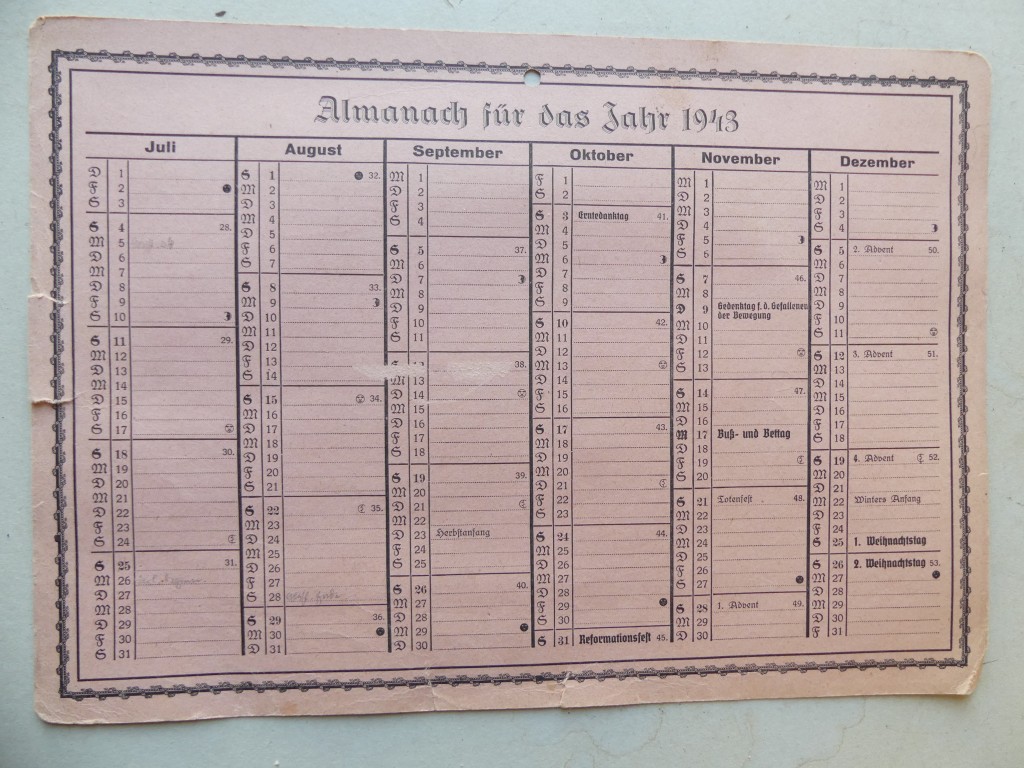 Almanach für das Jahr 1943
Juli
D 1
F 2
S 3
S 4 28.
M 5
D 6
M 7
D 8
F 9
S 10
S 11 29.
M 12
D 13
M 14
D 15
F 16
S 17
S 18 30.
M 19
D 20
M 21
D 22
F 23
S 24
S 25 31.
M 26
D 27
M 28
D 29
F 30
S 31
August
S 1 32.
M 2
D 3
M 4
D 5
F 6
S 7
S 8 33.
M 9
D 10
M 11
D 12
F 13
S 14
S 15 34.
M 16
D 17
M 18
D 19
F 20
S 21
S 22 35.
M 23
D 24
M 25
D 26
F 27
S 28
S 29 36.
M 30
D 31
September
M 1
D 2
F 3
S 4
S 5 37.
M 6
D 7
M 8
D 9
F 10
S 11
38.
M 13
D 14
M 15
D 16
F 17
S 18
S 19 39.
M 20
D 21
M 22
D 23 Herbstanfang
F 24
S 25
S 26 40.
M 27
D 28
M 29
D 30
Oktober
F 1
S 2
S 3 Erntedanktag 41.
M 4
D 5
M 6
D 7
F 8
S 9
S 10 42.
M 11
D 12
M 13
D 14
F 15
S 16
S 17 43.
M 18
D 19
M 20
D 21
F 22
S 23
S 24 44.
M 25
D 26
M 27
D 28
F 29
S 30
S 31 Reformationsfest 45.
November
M 1
D 2
M 3
D 4
F 5
S 6
S 7 46.
M 8
D 9 Gedenktag f. d. Gefallenen
der Bewegung
M 10
D 11
F 12
S 13
S 14 47.
M 15
D 16
M 17 Buß- und Bettag
D 18
F 19
S 20
S 21 Totenfest 48.
M 22
D 23
M 24
D 25
F 26
S 27
S 28 1. Advent 49.
M 29
D 30
Dezember
M 1
D 2
F 3
S 4
S 5 2. Advent 50.
M 6
D 7
M 8
D 9
F 10
S 11
S 12 3. Advent 51.
M 13
D 14
M 15
D 16
F 17
S 18
S 19 4. Advent 52.
M 20
D 21
M 22 Winters Anfang
D 23
F 24
S 25 1. Weihnachtstag
S 26 2. Weihnachtstag 53.
M 27
D 28
M 29
D 30
F 31